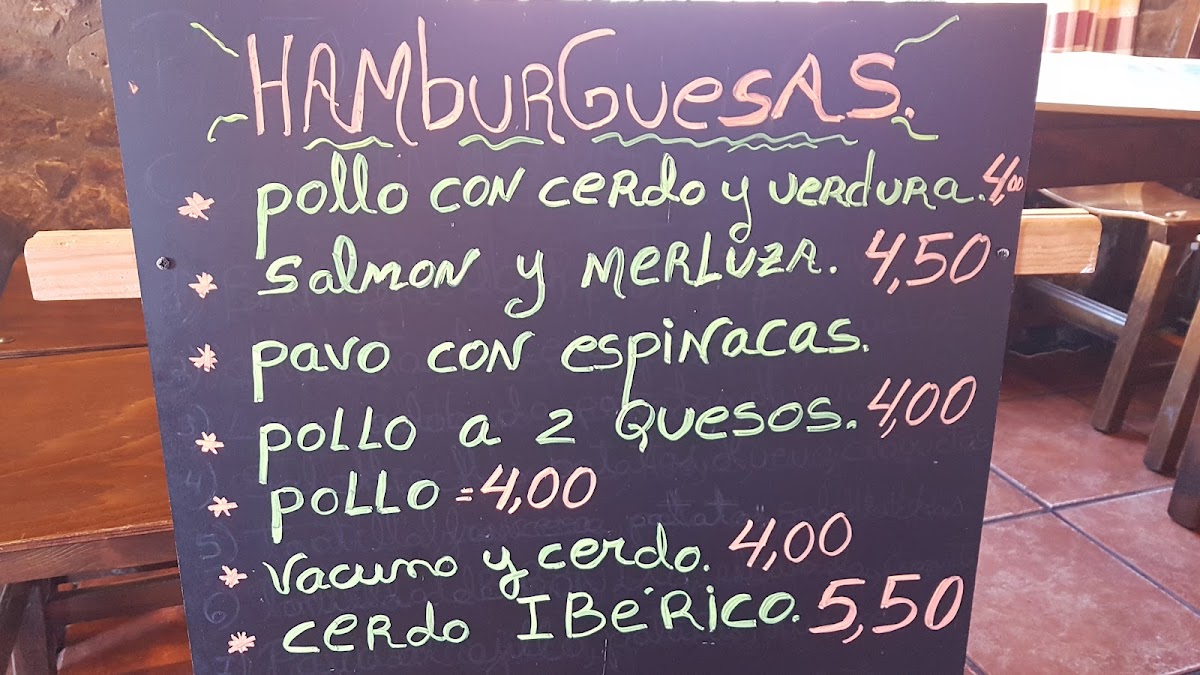 HAMBURGUESAS.
* pollo con cerdo y verdura. 4,00
* salmon y merluza. 4,50
* pavo con espinacas.
* pollo a 2 quesos. 4,00
* pollo = 4,00
* vacuno y cerdo. 4,00
* cerdo IBéRico. 5,50